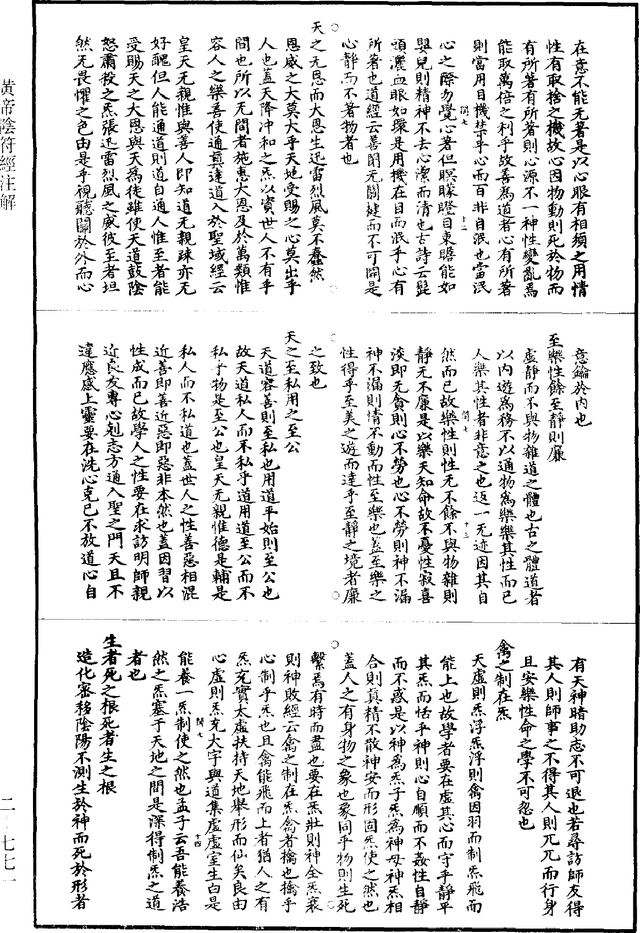 在意不能无著是以心眼有相須之用情
性有取捨之機故心因物動則死於物而
有所著有所著則心源不一神性變亂焉
能取萬倍之利乎故善為道者心有所著
則當用目機禁乎心而百非自泯也當泯
心之際勿覺心著但瞑矇瞪目東瞻能如
嬰兒則精神不去心潔而清也古詩云髭
頭濃血眼如環是用機在目而泯乎心有
所著也道經云善閉无關楗而不可開是
心靜而不著物者也
天之无恩而大恩生迅雷烈風莫不蠢然
恩威之大莫大乎天地受賜之心莫出乎
人也蓋天降冲和之炁以資世人不有乎
間也所以无間者施惠大恩及於萬類惟
容人之樂善使通真達道入於聖域經云
皇天无親惟與善人即知道无親踈亦无
好醜但人能通道則道自通人惟至者能
受賜天之大恩與天為徒雖使天道鼓陰
怒肅殺之炁張迅雷烈風之威彼至者坦
然无畏懼之色由是乎視聽關於外而心
意鑰於內也
至樂性餘至靜則廉
虛靜而不與物雜道之體也古之體道者
以內遊為務不以適物為樂樂其性而已
人樂其性者非意之也返一无迹因其自
然而已故樂性則性无不餘不與物雜則
靜无不廉是以樂天知命故不憂性寂喜
淡即无貪則心不勞也心不勞則神不漏
神不漏則情不動而性至樂也蓋至樂之
性得乎至美之遊而達乎至靜之境者廉
之致也
天之至私用之至公
天道容善則至私也用道平始則至公也
故天道私人而不私乎道用道至公而不
私乎物是至公也皇天无親惟德是輔是
私人而不私道也蓋世人之性善惡相混
近善即善近惡即惡非本然也蓋因習以
性成而已故學人之性要在求訪明師親
近良友專心剋志方通入聖之門天且不
違應感上靈要在洗心克已不放道心自
有天神暗助志不可退也若尋訪師友得
其人則師事之不得其人則兀兀而行身
且安樂性命之學不可忽也
禽之制在炁
天虛則炁浮炁浮則禽因羽而制炁飛而
能上也故學者要在虛其心而守乎靜平
其炁而恬乎神則心自順而不姦性自靜
而不惑是以神為炁子炁為神母神炁相
合則真精不散神安而形固炁使之然也
蓋人之有身物之象也象同乎物則生死
繫焉有時而盡也要在炁壯則神全炁衰
則神敗經云禽之制在炁禽者擒也擒乎
心制乎炁也且禽能飛而上者猶人之有
炁充實太虛扶持天地舉形而仙矣良由
心虛則炁充大宇與道集虛虛室生白是
能養一炁制使之然也孟子云吾能養浩
然之炁塞于天地之間是深得制炁之道
者也
生者死之根死者生之根
造化密移陰陽不測生於神而死於形者
黄帝陰符經注解
二-七七一